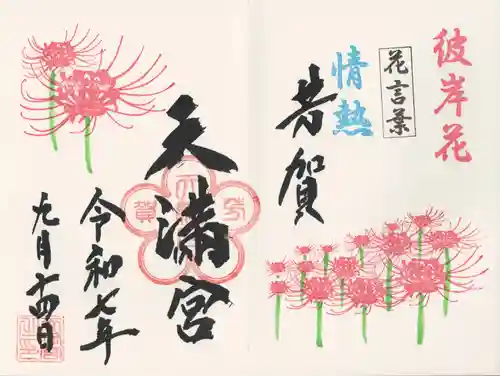 彼岸花
花言葉
情熱
芳賀
天満宮
令和七年
九月十四日